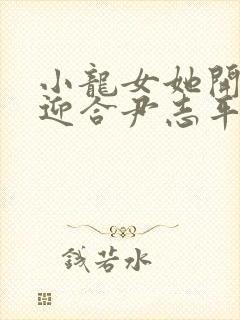 小龍女她開
迎合尹志平
錢若水